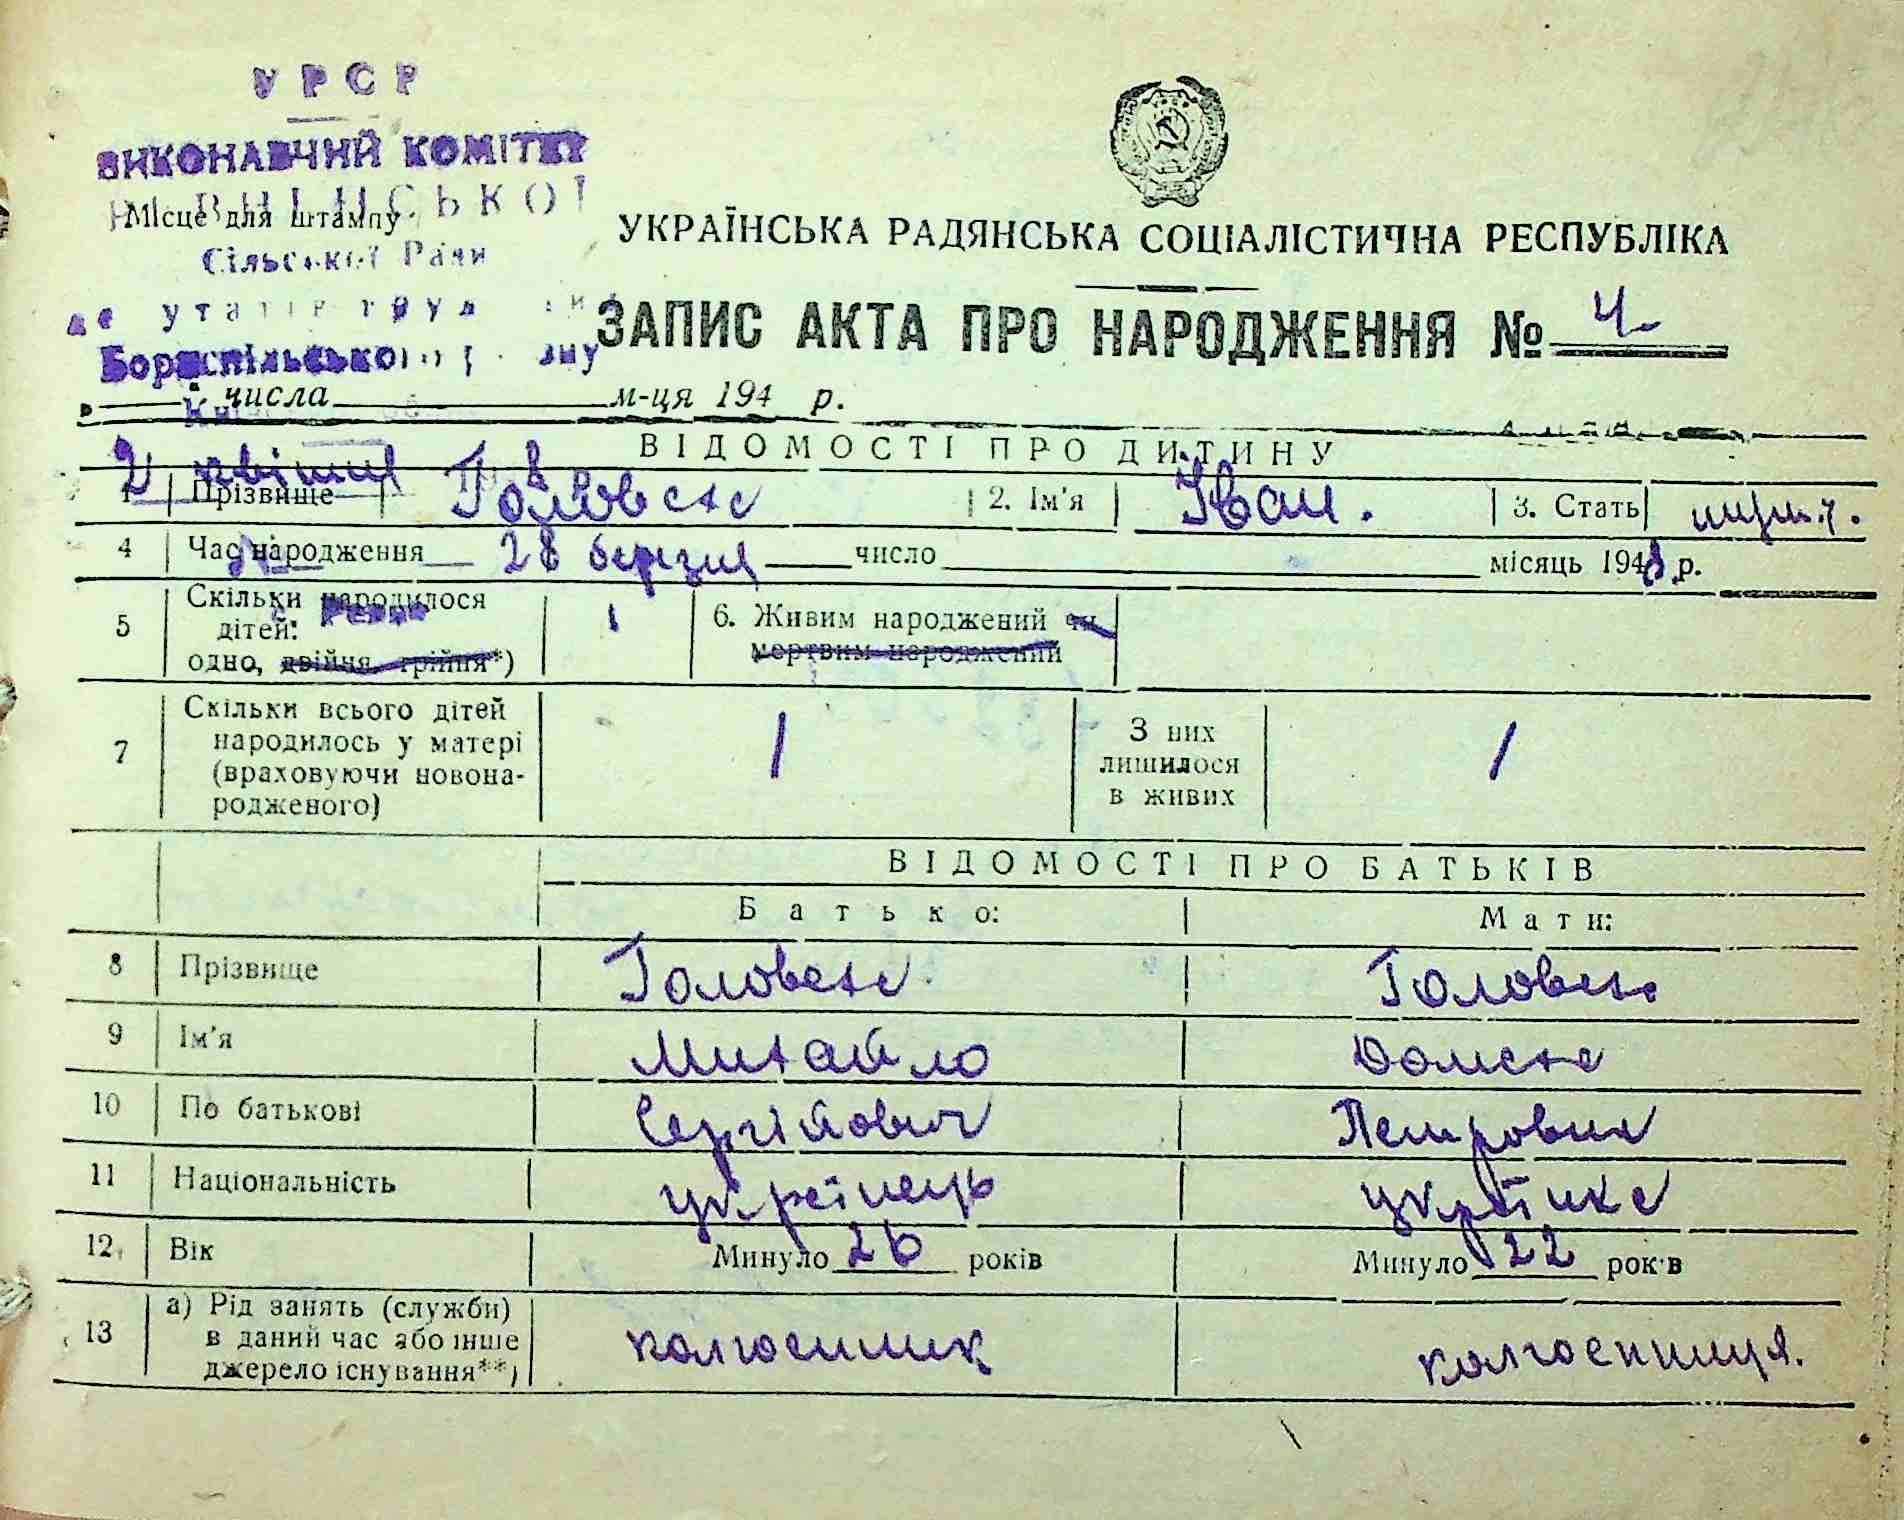 УРСР
ВИКОНАВЧИЙ КОМІТЕТ
Місце для штампу
Сільської Ради
Бориспільського
УКРАЇНСЬКА РАДЯНСЬКА СОЦІАЛІСТИЧНА РЕСПУБЛІКА
ЗАПИС АКТА ПРО НАРОДЖЕННЯ № 4
числа м-ця 194 р.
2 квітня 8
ВІДОМОСТІ ПРО ДИТИНУ
1 Прізвище Головаха 2. Ім'я Іван. 3. Стать
4 Час народження 28 березня число місяць 1948 р.
5 Скільки народилося дітей: одно, двійня, трійня*) 1 6. Живим народжений чи мертвим народжений
7 Скільки всього дітей
народилось у матері
(враховуючи новона-
родженого)
1
З них
лишилося
в живих
1
ВІДОМОСТІ ПРО БАТЬКІВ
Батько: Мати:
8 Прізвище Головаха Головаха
9 Ім'я Михайло Домаха
10 По батькові Сергійович Петровна
11 Національність українець українка
12 Вік Минуло 26 років Минуло 22 років
13 а) Рід занять (служби)
в даний час або інше
джерело існування**)
колгоспник колгоспниця.